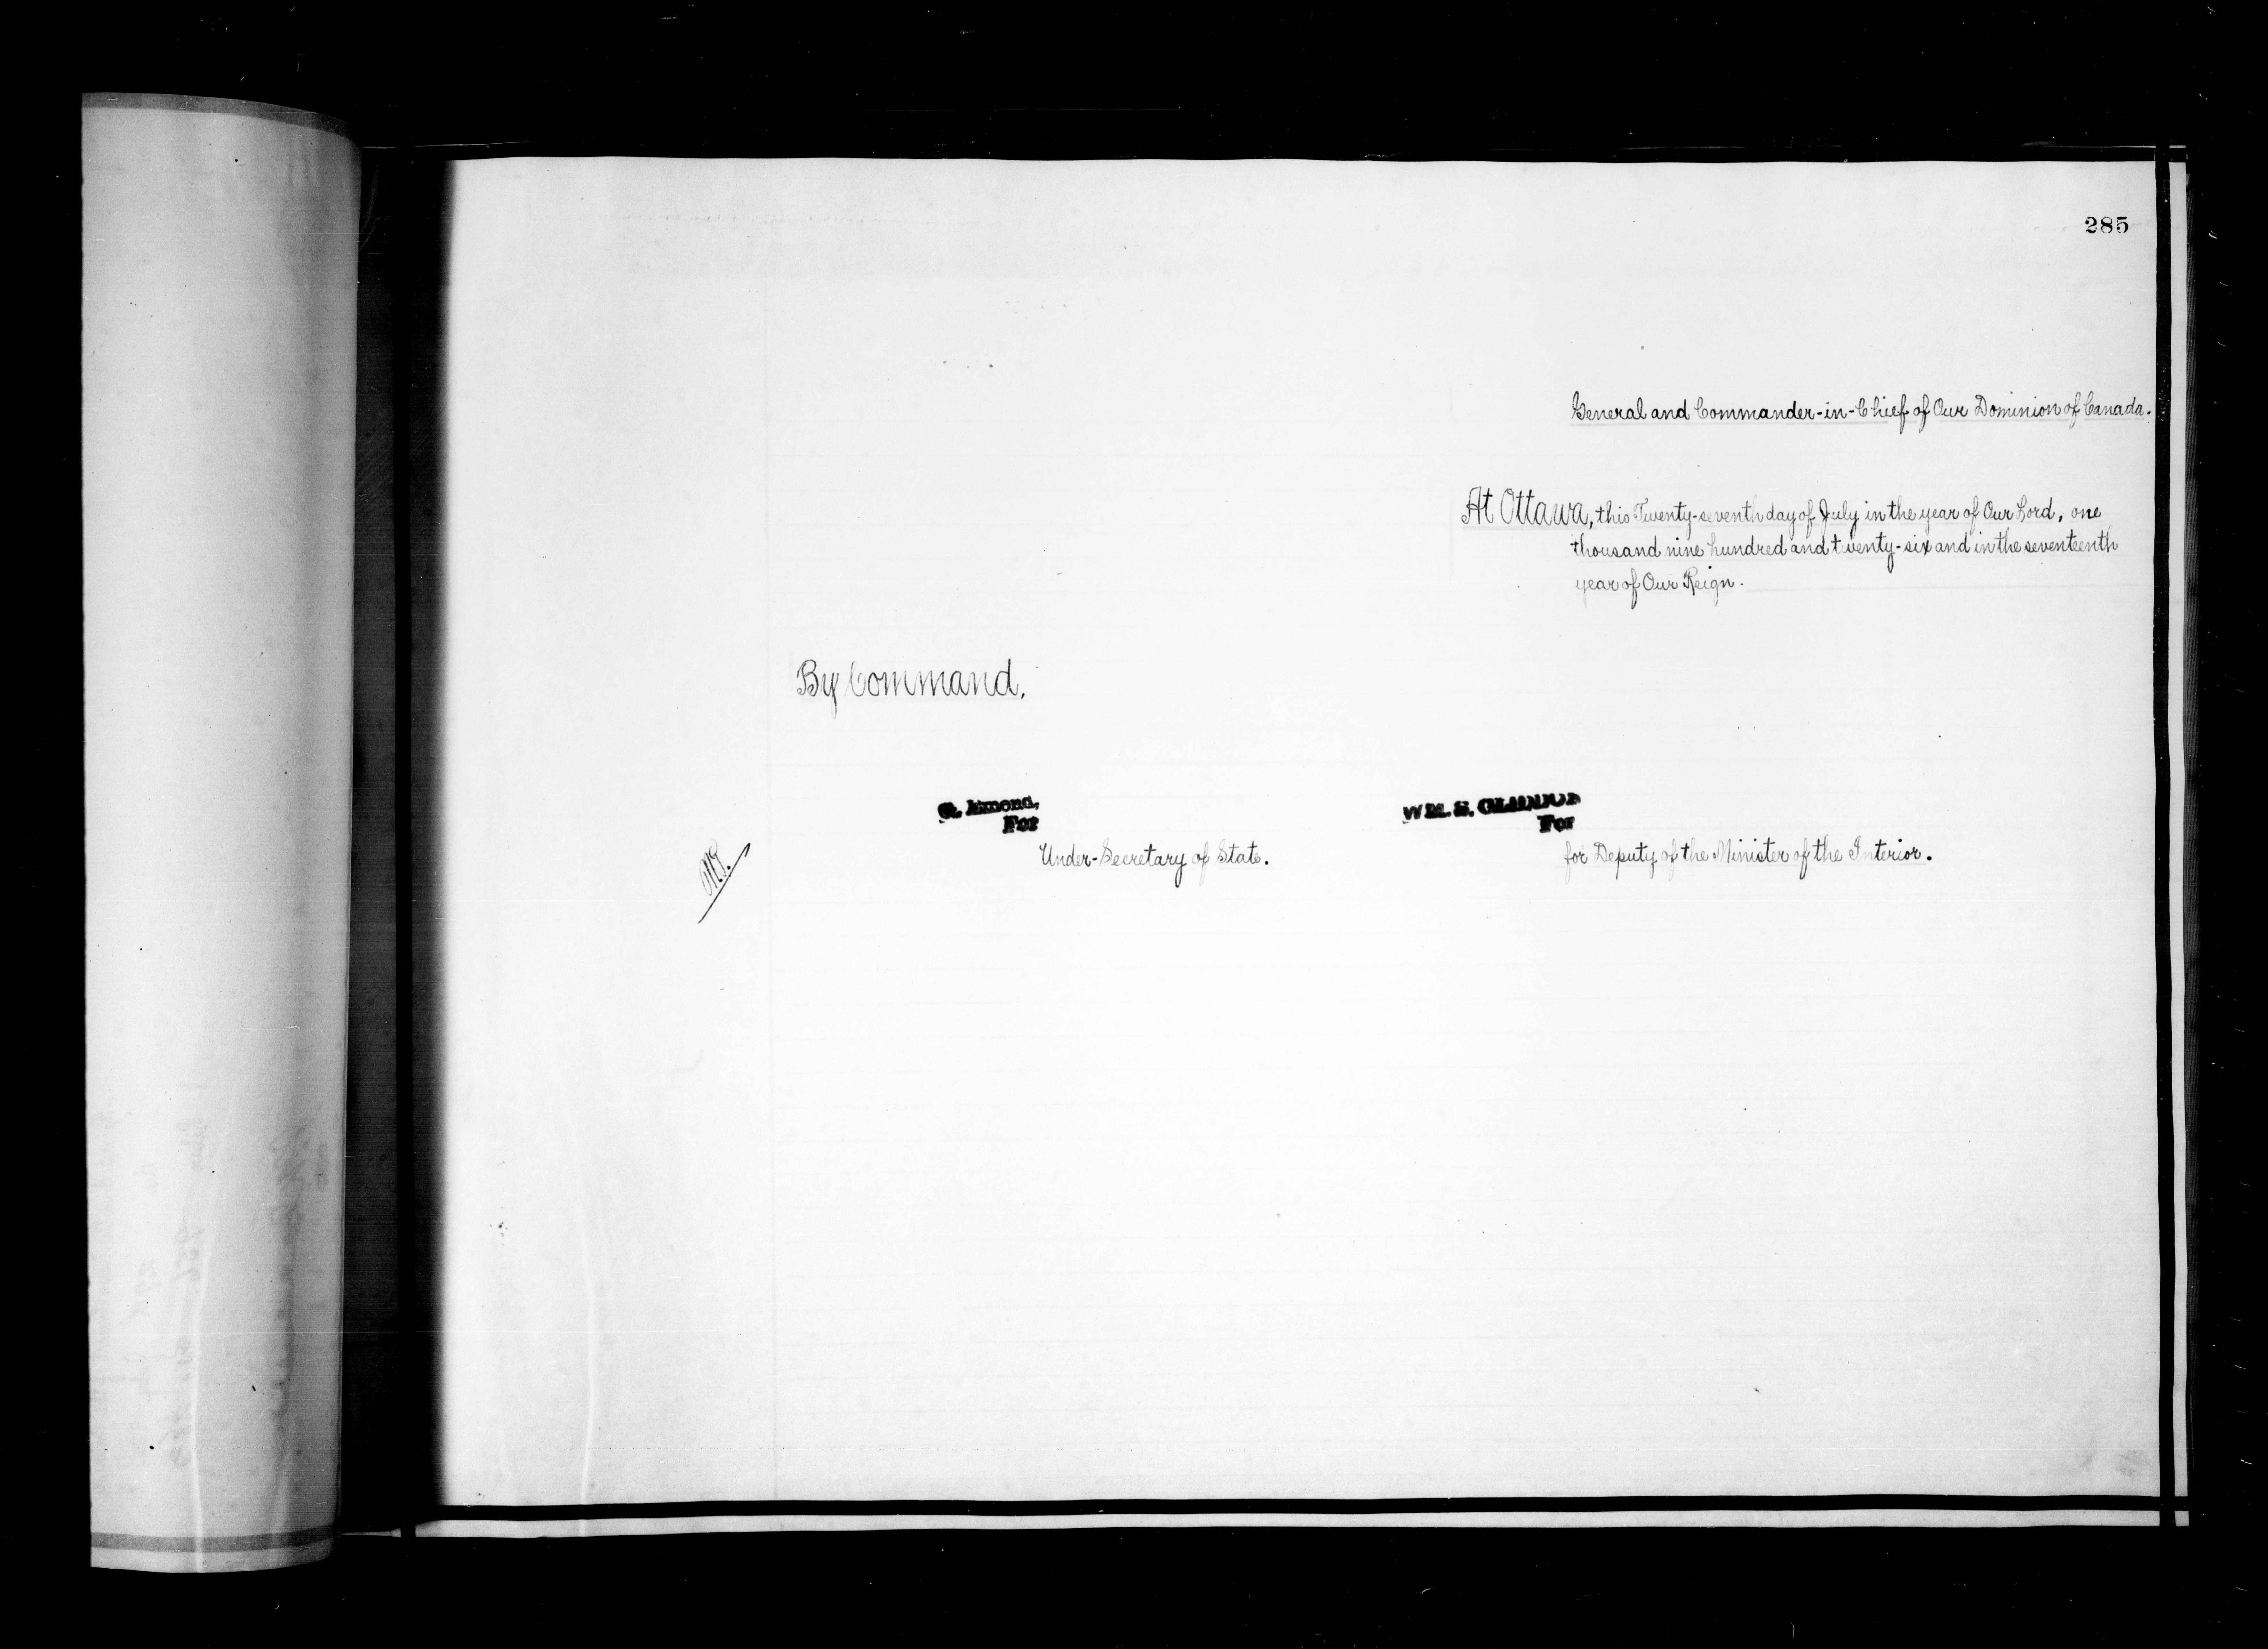 285
General and Commander-in-Chief of Our Dominion of Canada.
At Ottawa, this Twenty-seventh day of July in the year of Our Lord, one
thousand nine hundred and twenty-six and in the seventeenth
year of Our Reign.
By Command.
G. Emond,
For
Under-Secretary of State.
WM. S.
For
for Deputy of the Minister of the Interior.